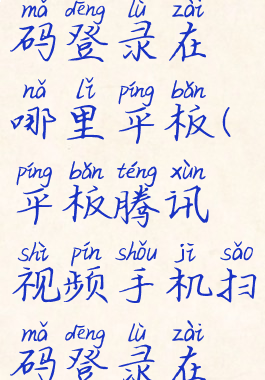 mǎ dēng lù zài
码登录在
nǎ lǐ píng bǎn
哪里平板(
píng bǎn téng xùn
平板腾讯
shì pín shǒu jī sǎo
视频手机扫
mǎ dēng lù zài
码登录在